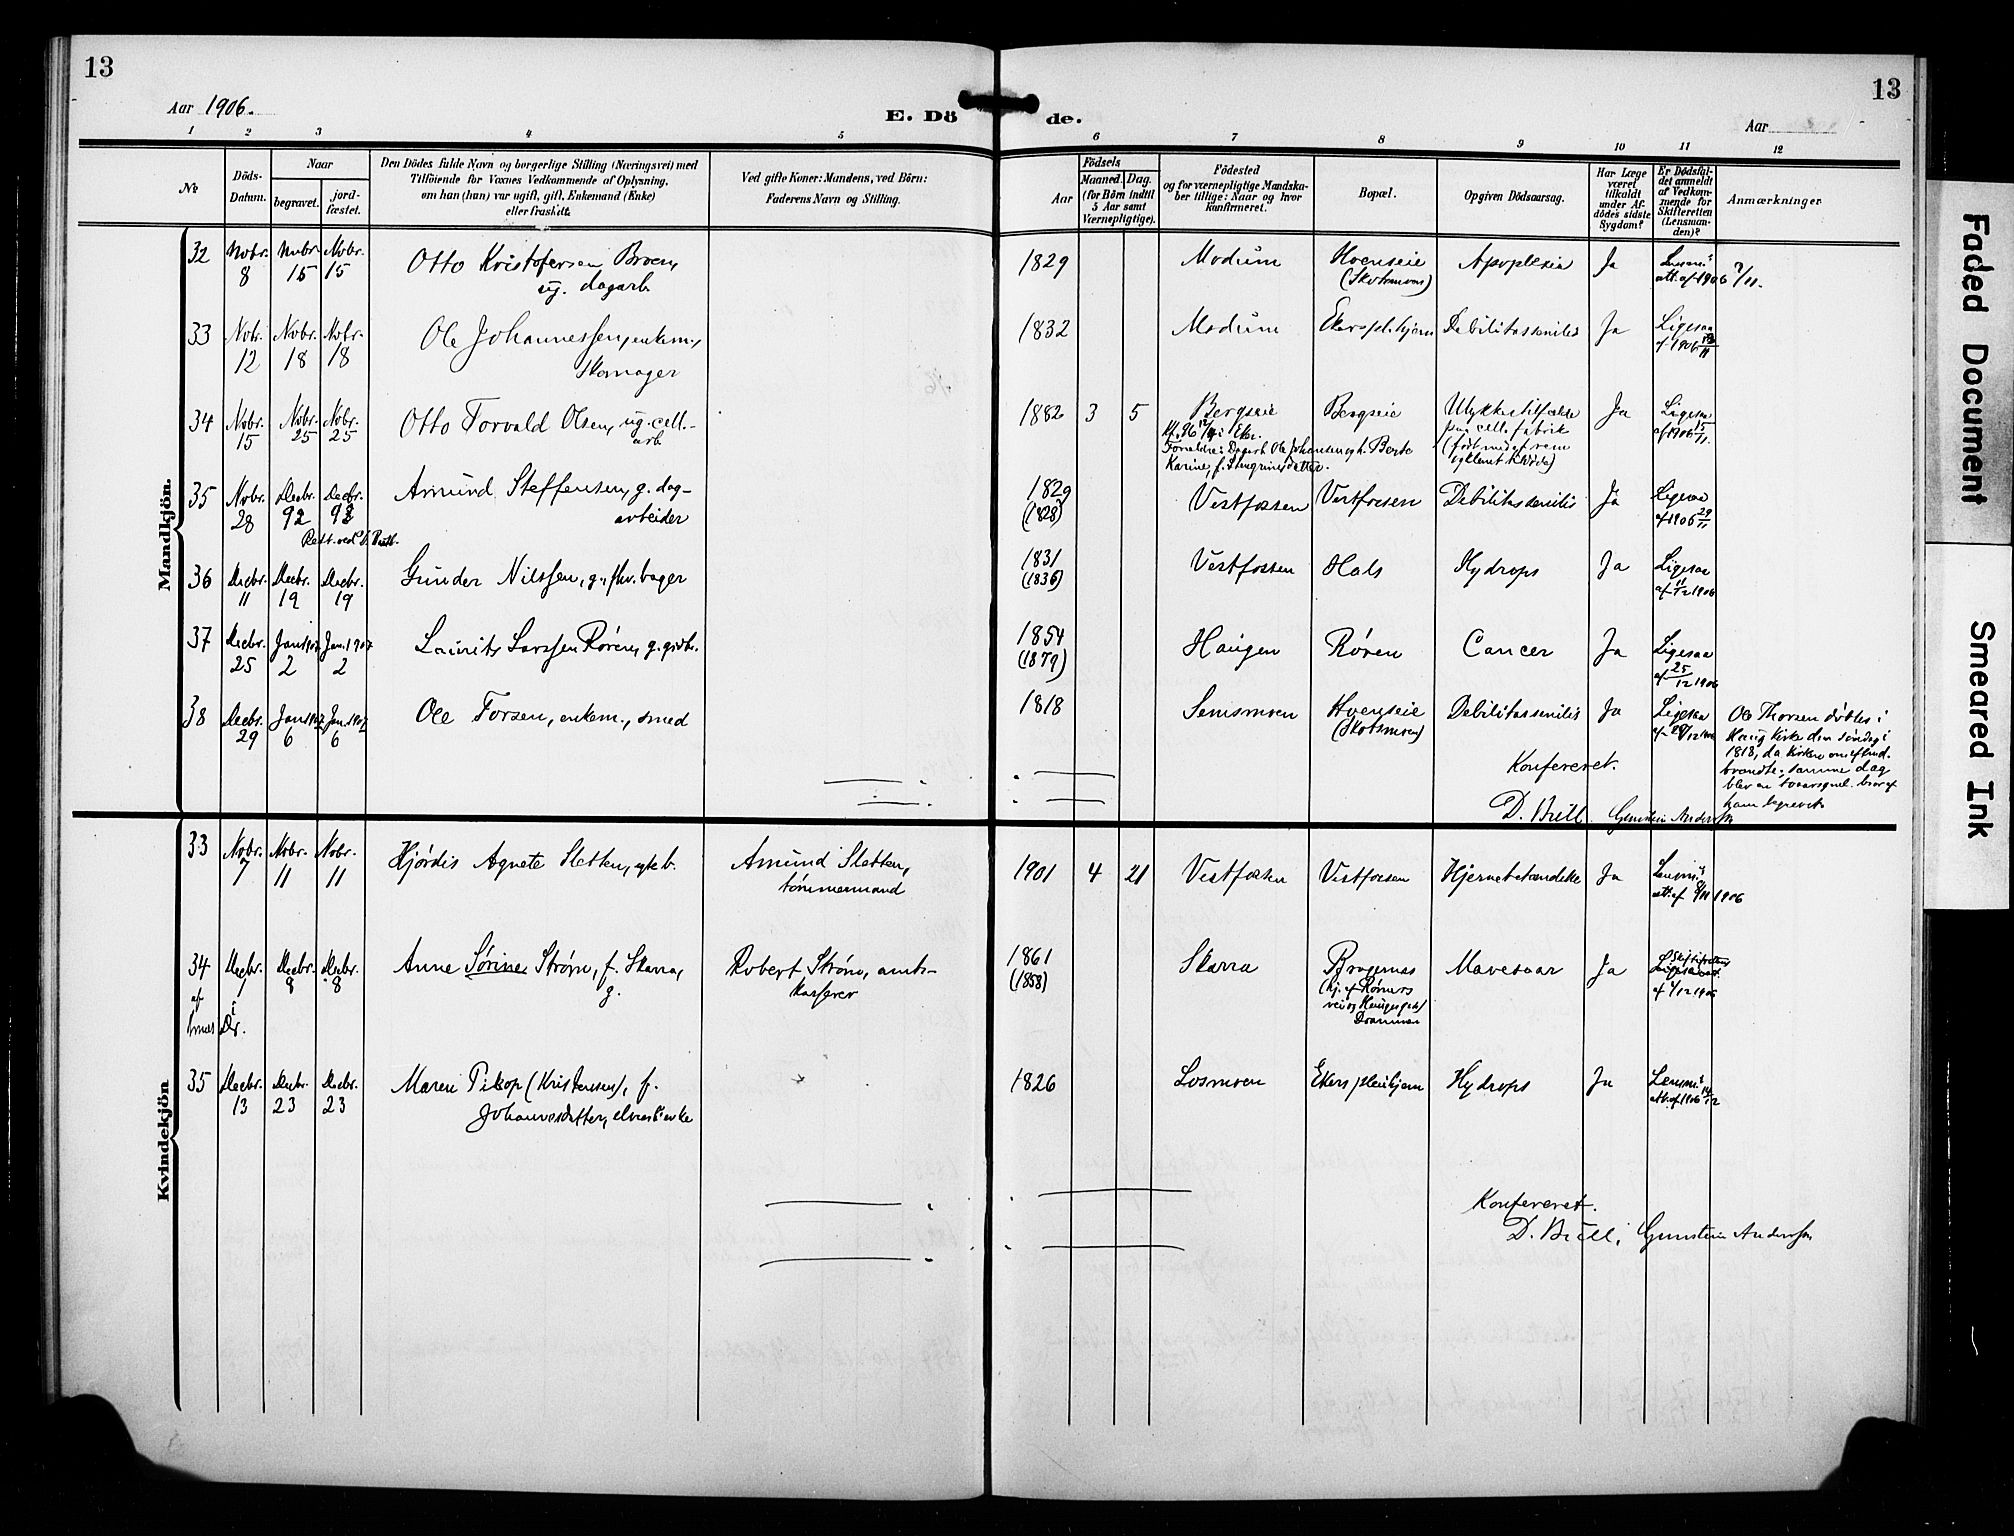 13
13
Aar 1906.
E. Dö de.
Aar
1 2 3 4 5 6 7 8 9 10 11 12
No
Döds-
Datum.
Naar
begravet.
jord-
fæstet.
Den Dödes fulde Navn og borgerlige Stilling (Næringsvei) med
Tilföiende for Voxnes Vedkommende af Oplysning,
om han (hun) var ugift, gift, Enkemand (Enke)
eller fraskilt.
Ved gifte Koner: Mandens, ved Börn:
Faderens Navn og Stilling.
Födsels
Aar
Maaned. Dag.
(for Börn indtil
5 Aar samt
Værnepligtige).
Födested
og for værnepligtige Mandska-
ber tillige: Naar og hvor
konfirmeret.
Bopæl.
Opgiven Dödsaarsag.
Har Læge
været
tilkaldt
under Af-
dödes sidste
Sygdom?
Er Dödsfal-
det anmeldt
af Vedkom-
mende for
Skifteretten
(Lensman-
den)?
Anmærkninger
Mandkjön.
32 Novbr. 8 Novbr. 15 Novbr. 15 Otto Kristofersen Broen, ug. dagarb. 1829 Modum Hoenseie (Skotsmoen) Apoplexia Ja Lensm.s att. af 1906 7/11.
33 Novbr. 12 Novbr. 18 Novbr. 18 Ole Johannessen, enkem., skomager 1832 Modum Ekers pleihjem Debilitas senilis Ja Ligesaa af 1906
34 Novbr. 15 Novbr. 25 Novbr. 25 Otto Torvald Olsen, ug. cell.-arb 1882 3 5 Bergseie Bergseie Ulykkestilfælde paa cell. fabrik Ja Ligesaa af 1906 15/11.
Forældre: Dagarb. Ole Johansen og h. Berte
Karine, f.
35 Novbr. 28 Decbr. 9 Decbr. 9 Amund Steffensen, g. dag-
arbeider 1829 (1828) Vestfossen Vestfossen Debilitas senilis Ja Ligesaa af 1906 29/11
36 Decbr. 11 Decbr. 19 Decbr. 19 Gunder Nilssen, g., fhv. bager 1831 (1836) Vestfossen Hals Hydrops Ja Ligesaa af 11/12 1906
37 Decbr. 25 Jan. 1907 2 Jan. 1907 2 Laurits Larssen Røren, g. grdbr. 1854 (1879) Haugen Røren Cancer Ja Ligesaa af 25/12 1906
38 Decbr. 29 Jan. 1907 6 Jan. 1907 6 Ole Torsen, enkem., smed 1818 Semsmoen Hoenseie (Skotsmoen) Debilitas senilis Ja Ligesaa
Ole Thorsen døbtes i
Haug Kirke den søndag i
1818, da kirken om eftmd.
brændte, samme dag
blev en toaarsgml. bror af
ham begravet.
Konfereret.
D. Büll Gunstein Anderssen
Kvindekjön
33 Novbr. 7 Novbr. 11 Novbr. 11 Hjørdis Agnete Sletten, egteb. Amund Sletten, tømmermand 1901 4 21 Vestfossen Vestfossen Hjernebetændelse Ja Lensm.s att. af 8/11 1906
34 Decbr. 1 Decbr. 8 Decbr. 8 Anne Sørine Strøm, f. Skarra, g. Robert Strøm, amts-
kasserer 1861 (1858) Skarra Bragernes
(hj. af Rømers
vei og Haugesgate)
Drammen Mavesaar Ja Skifterettens af 1/12 1906
35 Decbr. 13 Decbr. 23 Decbr. 23 Maren Piltop (Kristensen), f.
Johannesdatter, enke 1826 Losmoen Ekers pleihjem Hydrops Ja Lensm.s att. af 1906 14/12
Konfereret.
D. Büll, Gunstein Anderssen
Faded Document
Smeared Ink